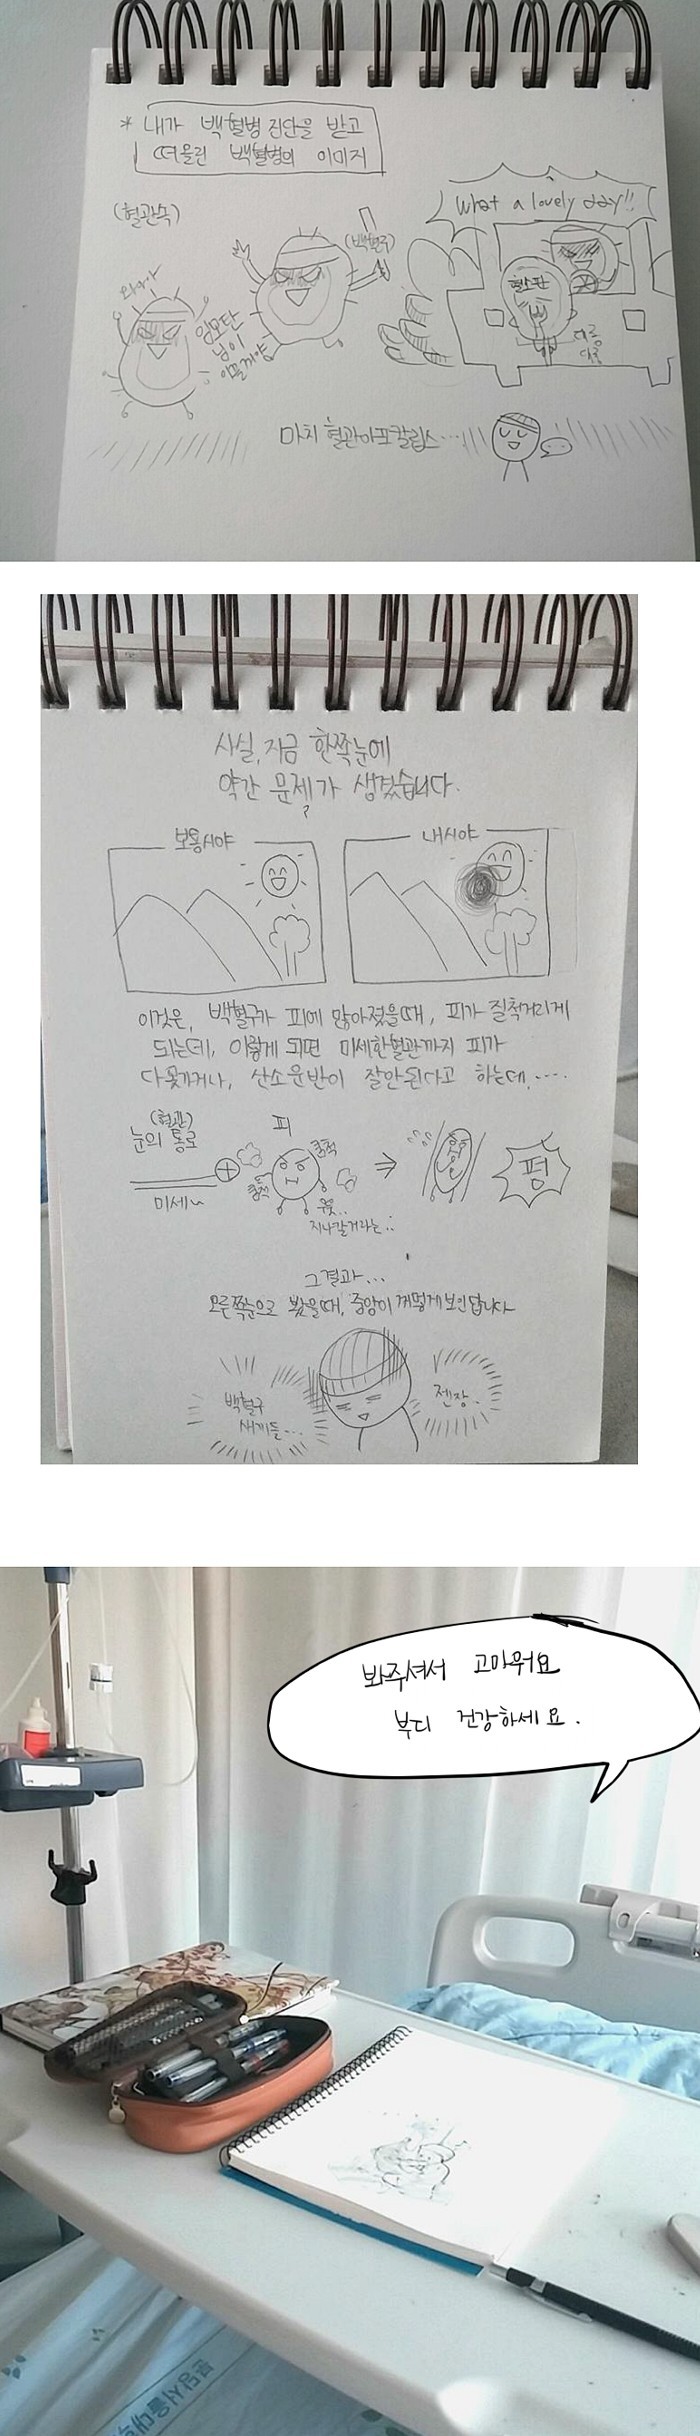 * 내가 백혈병 진단을 받고
떠올린 백혈병의 이미지
(혈관속)
(백혈구)
What a lovely day!!
와아아
임모탄
님이
혈소판
대롱
대롱
마치 혈관아포칼립스...
사실, 지금 한쪽눈에
약간 문제가 생겼습니다.
보통시야
내시야
이것은, 백혈구가 피에 많아졌을때, 피가 질척거리게
되는데, 이렇게 되면 미세한혈관까지 피가
다 못가거나, 산소운반이 잘안된다고 하는데,....
(혈관)
눈의 통로
미세~
피
지나갈거라능..
펑
그결과...
오른쪽눈으로 봤을때, 중앙이 꺼멓게보인답니다
백혈구
새끼들...
젠장.
봐주셔서 고마워요
부디 건강하세요.